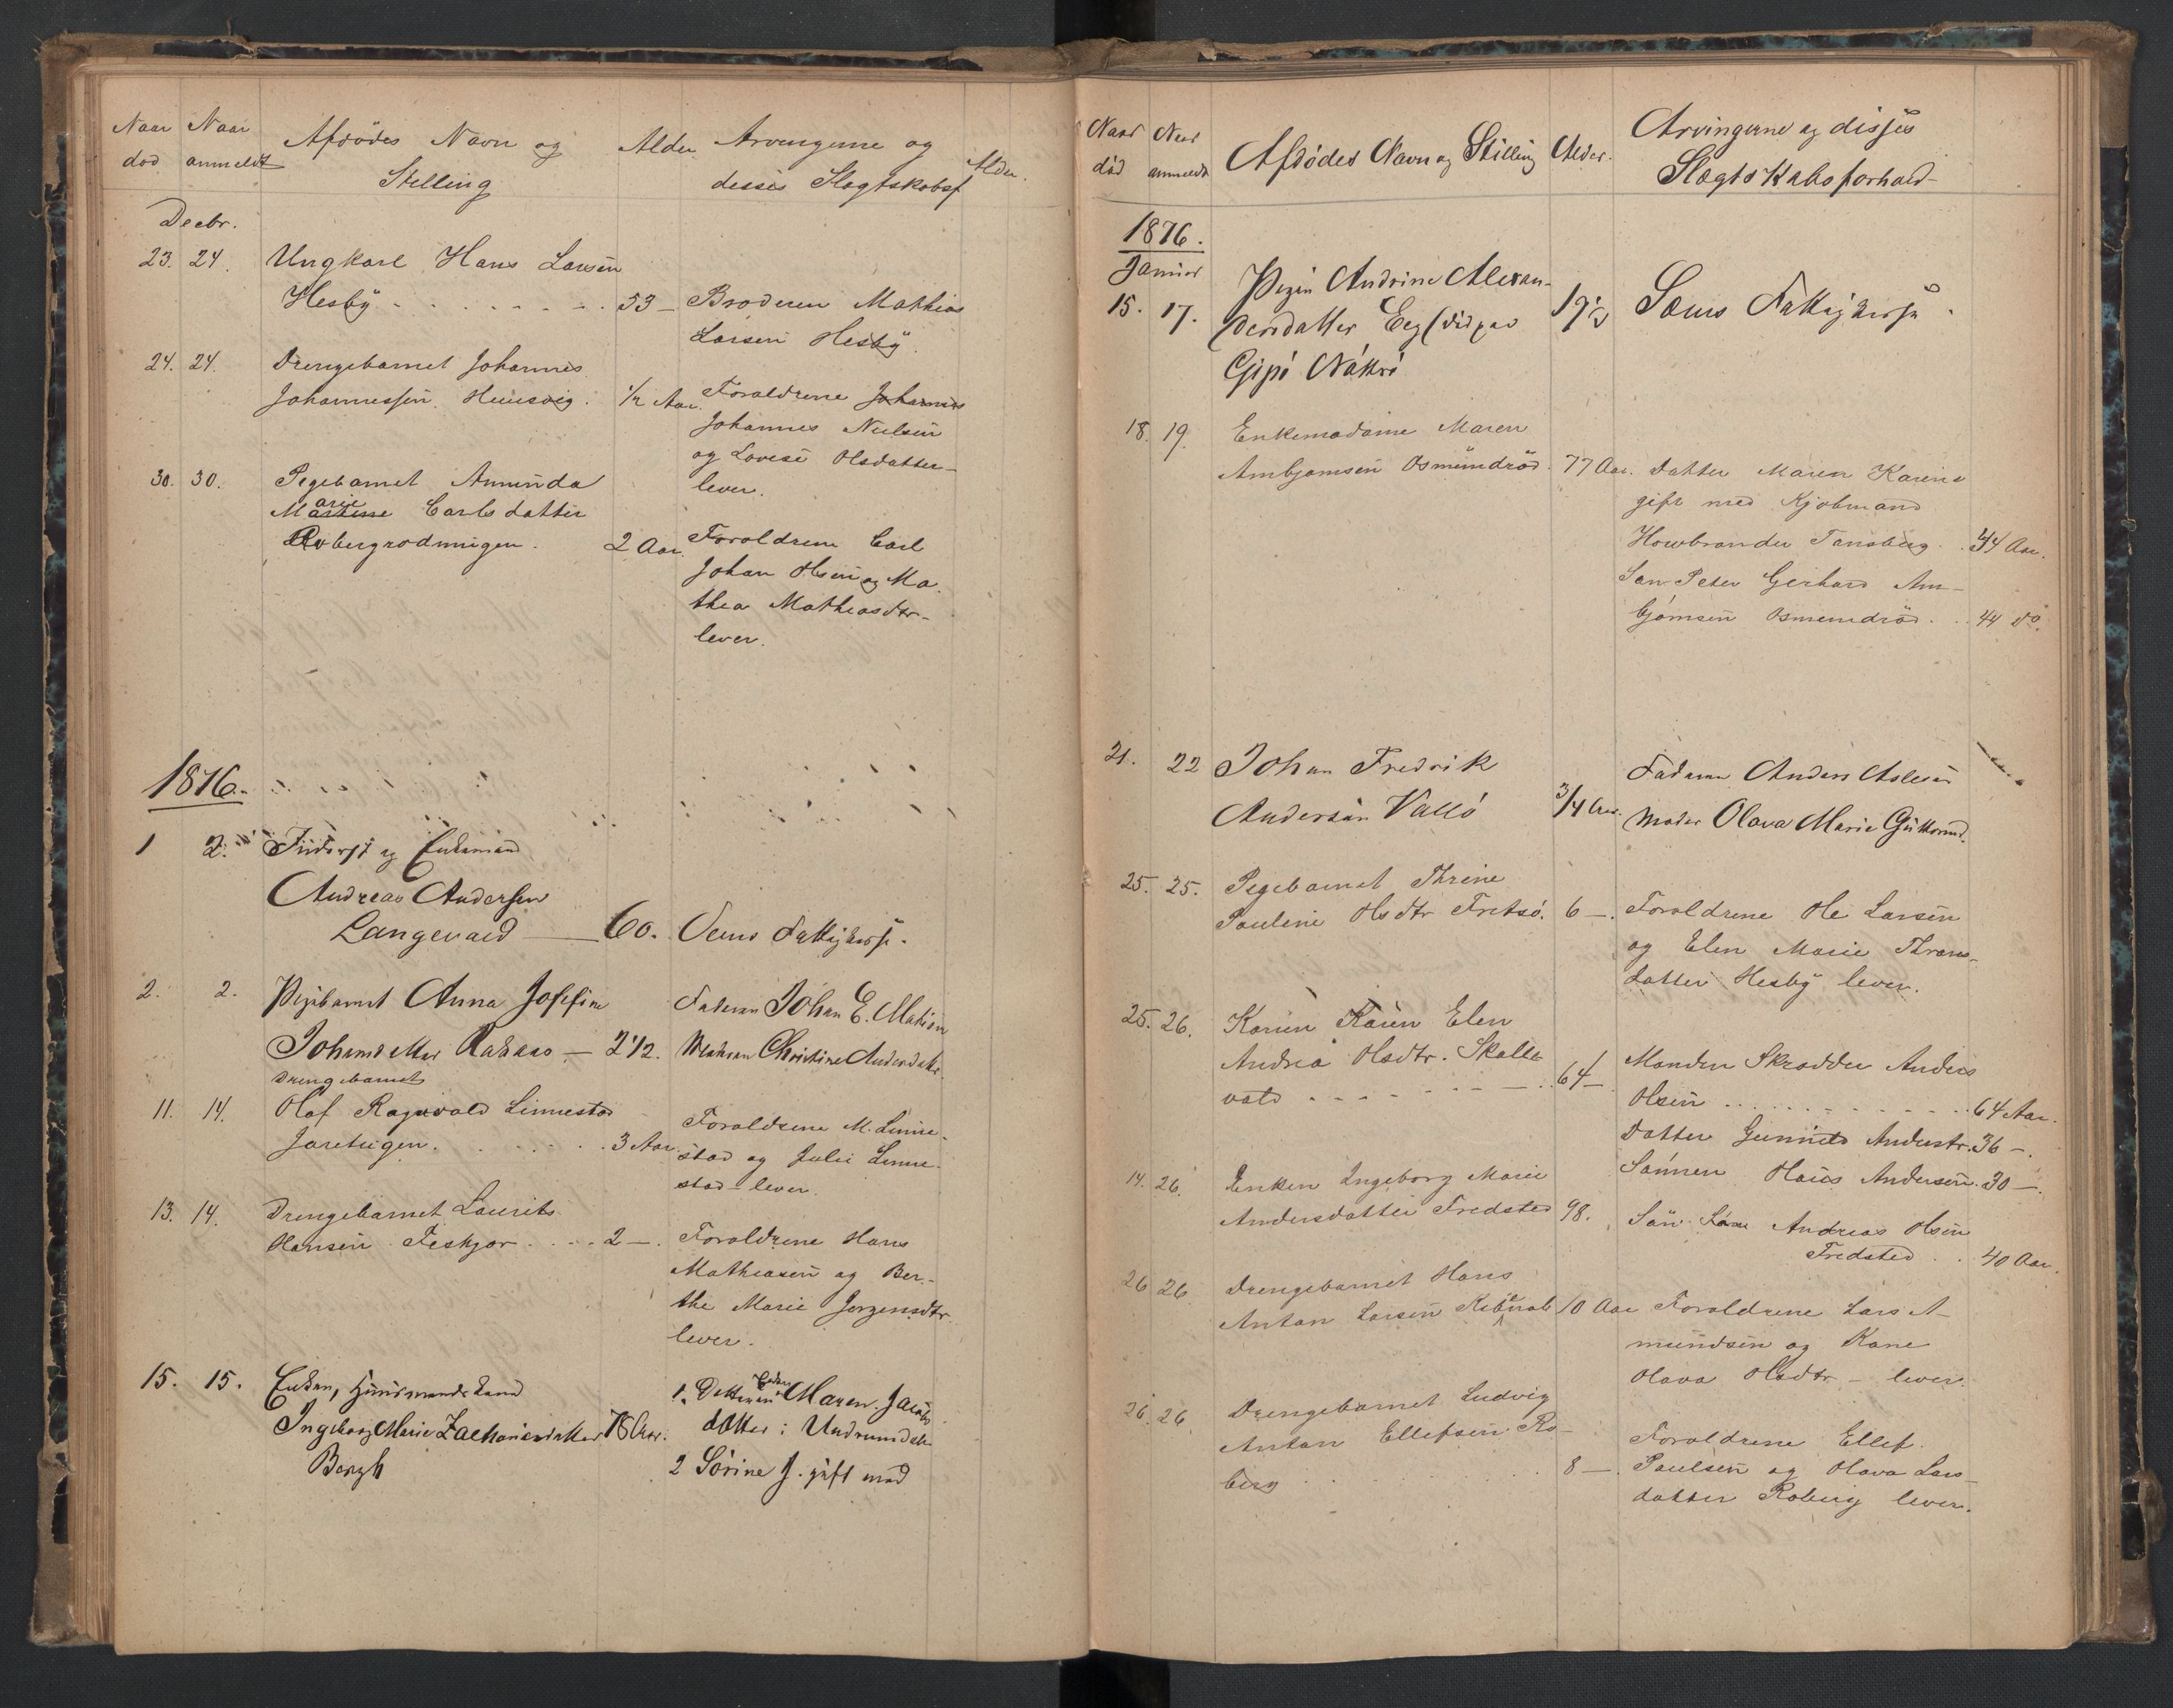 Naar Naar Afdödes Navn og Alder Arvingerne og Alder.
död anmeldt Stilling disses Slægtskabsf
Decbr.
23. 24. Ungkarl Hans Larsen
Hesby . . . . . . 53 — Broderen Mathias
Larsen Hesby.
24. 24. Drengebarnet Johannes
Johannessen Huusvig. 1/2 Aar. Foraldrene Johannes
Johannes Nielsen
og Lovise Olsdatter —
lever.
30. 30. Pigebarnet Amunda
Marie Carlsdatter
Robergrødningen. 2 Aar. Foraldrene Carl
Johan Olsen og Ma
thea Mathiasdtr —
lever.
1876.
1 2. og Enkemand
Andreas Andersen
Langevald — 60. Sems Fattigkasse.
2. 2. Pigebarnet Anna Josefine Faderen Johan E. Mathisen
Johansdatter — 2 1/2. Moderen Christine Andersdatter
Drengebarnet
11. 14. Olaf Ragnvald Linnestad
Jarteigen. . . . . 3 Aar. Foraldrene M. Linne-
stad og Julie Linne-
stad — lever.
13. 14. Drengebarnet Laurits
Hansen Feskjær . . . . 2 —. Foraldrene Hans
Mathiasen og Ber-
the Marie Jørgensdtr
lever.
15. 15. Enken, Huusmandskand 1. Datteren Enken Maren Jacobs
Ingeborg Marie Zachariasdatter 78 Aar. datter i Undrumsdal
Bergh 2 Sörine J. gift med

Naar Naar Afdödes Navn og Stilling Alder. Arvingerne og disses
död anmeldt Slægtskabsforhold
1876.
Januar
15. 17. Pigen Andrine Alexan-
dersdatter Eeg (död paa 19 1/2 Sems Fattigkasse.
Gipö Nötterö
18. 19. Enkemadame Maren
Ambjørnsen Osmundröd. 77 Aar. Datter Maren Karine
gift med Kjøbmand
Howbrander Tønsberg. . 34 Aar.
Søn Peter Gerhard Am-
bjørnsen Osmundröd . . 44 do.
21. 22 Johan Fredrik
Andersen Vallö 3/4 Aar. Faderen Anders Aslesen
Moder Olava Marie Guttormd.
25. 25. Pigebarnet Thrine
Pauline Olsdtr Fritsö. 6 —. Foraldrene Ole Larsen
og Elen Marie Thrans-
datter Hesby lever.
25. 26. Karen Karen Elen
Andrea Olsdtr. Skalle
vold . . . . . . 64 —. Manden Skrædder Anders
Olsen . . . . . . 64 Aar.
Datter Gunnild Anderstr. 36 —.
Sønnen Hans Andersen. 30 —.
14. 26. Enken Ingeborg Marie
Andersdatter Fredsted 98. Søn Andreas Olsen
Fredsted . . 40 Aar.
26 26. Drengebarnet Hans
Anton Larsen 10 Aar Foraldrene Lars A-
mundsen og Kane
Olava Olsdtr — lever.
26. 26 Drengebarnet Ludvig
Anton Ellefsen Ro-
berg . . . . 8 —. Foraldrene Ellef
Paulsen og Olava Lars-
datter Roberg lever.